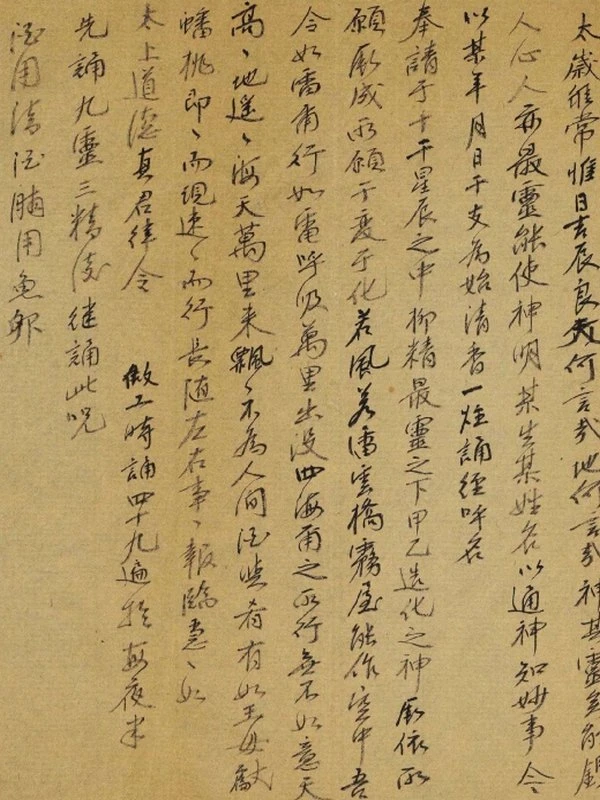 太歲經常惟日吉辰良天何言哉地何言哉神其靈矣
人心人亦最靈能使神明某生某姓名以通神知妙事令
以某年月日干支為始清香一炷誦經呼名
奉請于十干星辰之中柳精最靈之下甲乙造化之神厥依所
願厥成所願于變于化若風若雷雲橋霧屋能作空中吾
令如雷甫行如電呼吸萬里出没四海甫之所行無不如意天
高〻地遥〻海天萬里来飄〻不為人间酒與肴有如王母獻
蟠桃即〻而現速〻而行長随左右事〻報臨急〻如
太上道德真君律令
做工時誦四十九遍於每夜半
先誦九靈三精後継誦此咒
酒用清酒脯用魚